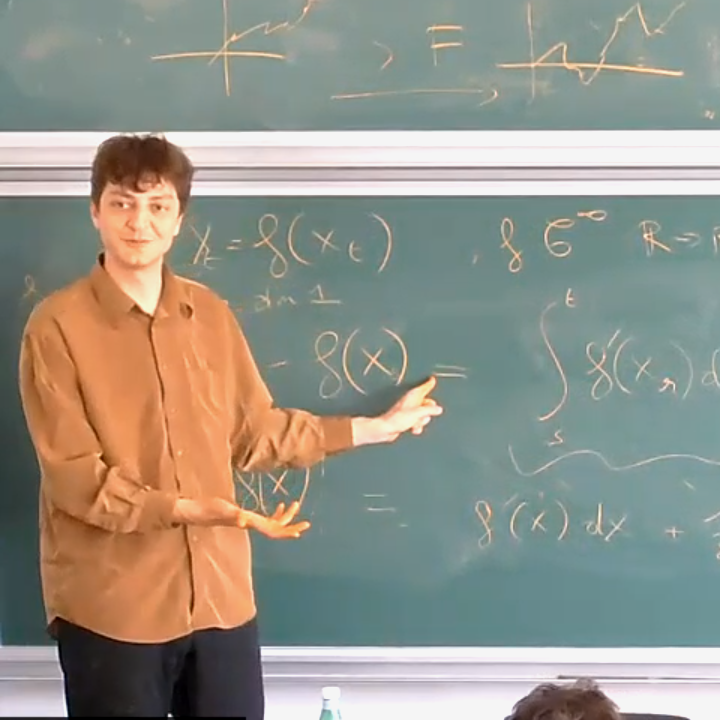 F
Y_t = f(X_t) , f C^∞ R →
dim 1
- f(X) = ∫_s^t f'(X_r) d
f(X) = f'(X) dX +